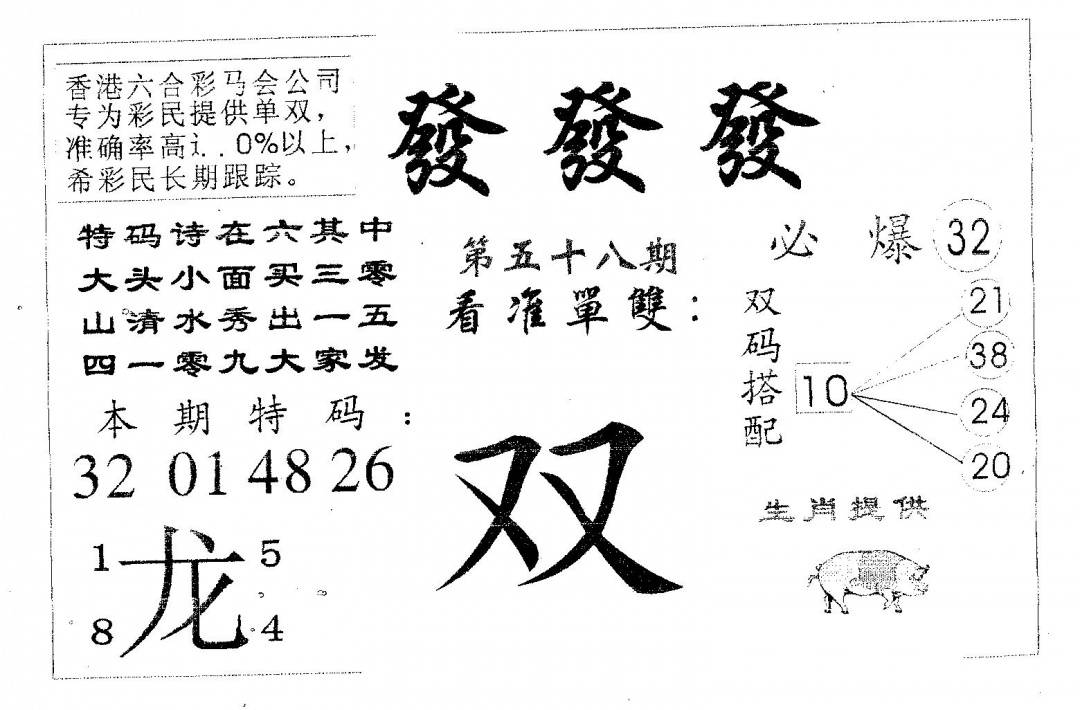 香港六合彩马会公司
专为彩民提供单双，
准确率高i..0%以上，
希彩民长期跟踪。
發 發 發
特码诗在六其中
大头小面买三零
山清水秀出一五
四一零九大家发
本期特码：
32 01 48 26
1 5
龙
8 4
第五十八期
看准單雙：
双
必爆 32
双码搭配
10
21
38
24
20
生肖提供